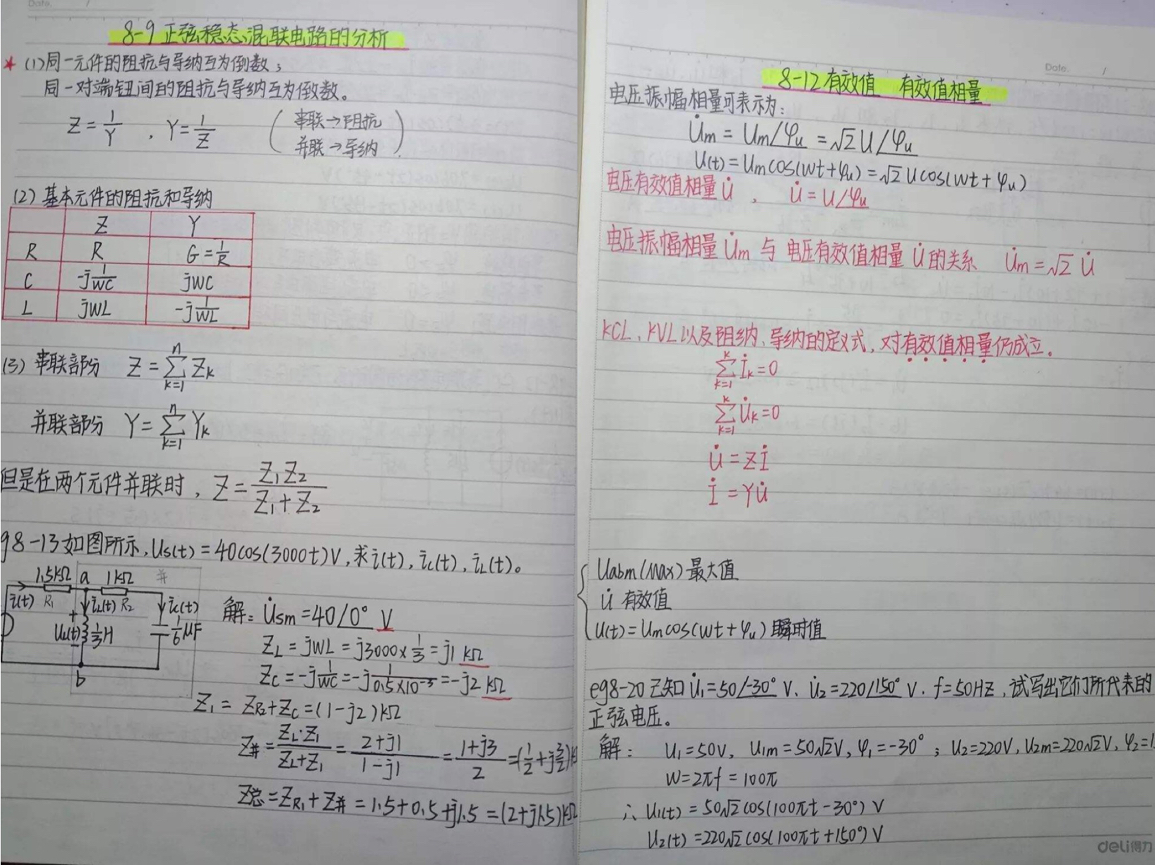 Date.
8-9 正弦稳态混联电路的分析
★ (1)同一元件的阻抗与导纳互为倒数;
同一对端钮间的阻抗与导纳互为倒数。
Z = 1/Y , Y = 1/Z (串联→阻抗
并联→导纳)
(2) 基本元件的阻抗和导纳
Z Y
R R G = 1/R
C -j 1/wC jwC
L jwL -j 1/wL
(3) 串联部份 Z = Σ_{k=1}^{n} Z_k
并联部份 Y = Σ_{k=1}^{n} Y_k
但是在两个元件并联时, Z = Z₁Z₂/(Z₁+Z₂)
g8-13 如图所示, Us(t) = 40cos(3000t)V, 求i(t), ic(t), iL(t)。
1.5kΩ a 1kΩ 并
i(t) R₁ iL(t) R₂ ic(t)
+ UL(t) - 1/3 H 1/6 μF
b
解: U̇sm = 40/0° V
Z_L = jwL = j3000×1/3 = j1 kΩ
Z_C = -j 1/wC = -j 1/(0.5×10⁻³) = -j2 kΩ
Z₁ = Z_R2 + Z_C = (1-j2)kΩ
Z并 = Z_L·Z₁/(Z_L+Z₁) = (2+j1)/(1-j1) = (1+j3)/2 = (1/2 + j3/2)k
Z总 = Z_R1 + Z并 = 1.5+0.5+j1.5 = (2+j1.5)kΩ
Date. /
8-12 有效值 有效值相量
电压振幅相量可表示为:
U̇m = Um/φu = √2 U/φu
U(t) = Um cos(wt+φu) = √2 U cos(wt+φu)
电压有效值相量 U̇ , U̇ = U/φu
电压振幅相量 U̇m 与 电压有效值相量 U̇ 的关系 U̇m = √2 U̇
KCL, KVL 以及阻纳、导纳的定义式, 对有效值相量仍成立。
Σ_{k=1}^{k} İ_k = 0
Σ_{k=1}^{k} U̇_k = 0
U̇ = Zİ
İ = YU̇
Uabm (Max) 最大值
U̇ 有效值
U(t) = Um cos(wt+φu) 瞬时值
eg8-20 已知 U̇₁ = 50/-30° V、U̇₂ = 220/150° V、f = 50HZ, 试写出它们所代表的
正弦电压。
解: U₁ = 50V, U₁m = 50√2V, φ₁ = -30° ; U₂ = 220V, U₂m = 220√2V, φ₂ = 1
W = 2πf = 100π
∴ U₁(t) = 50√2 cos(100πt-30°) V
U₂(t) = 220√2 cos(100πt+150°) V
deli得力